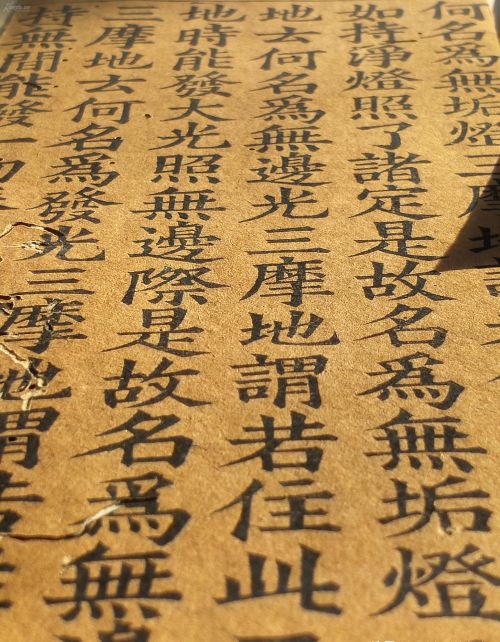 何名爲無垢燈三摩地
如持淨燈照了諸定是故名爲無垢燈
地云何名爲無邊光三摩地謂若住此
地時能發大光照無邊際是故名爲無邊
三摩地云何名爲發光三摩地謂若
持無間能發一